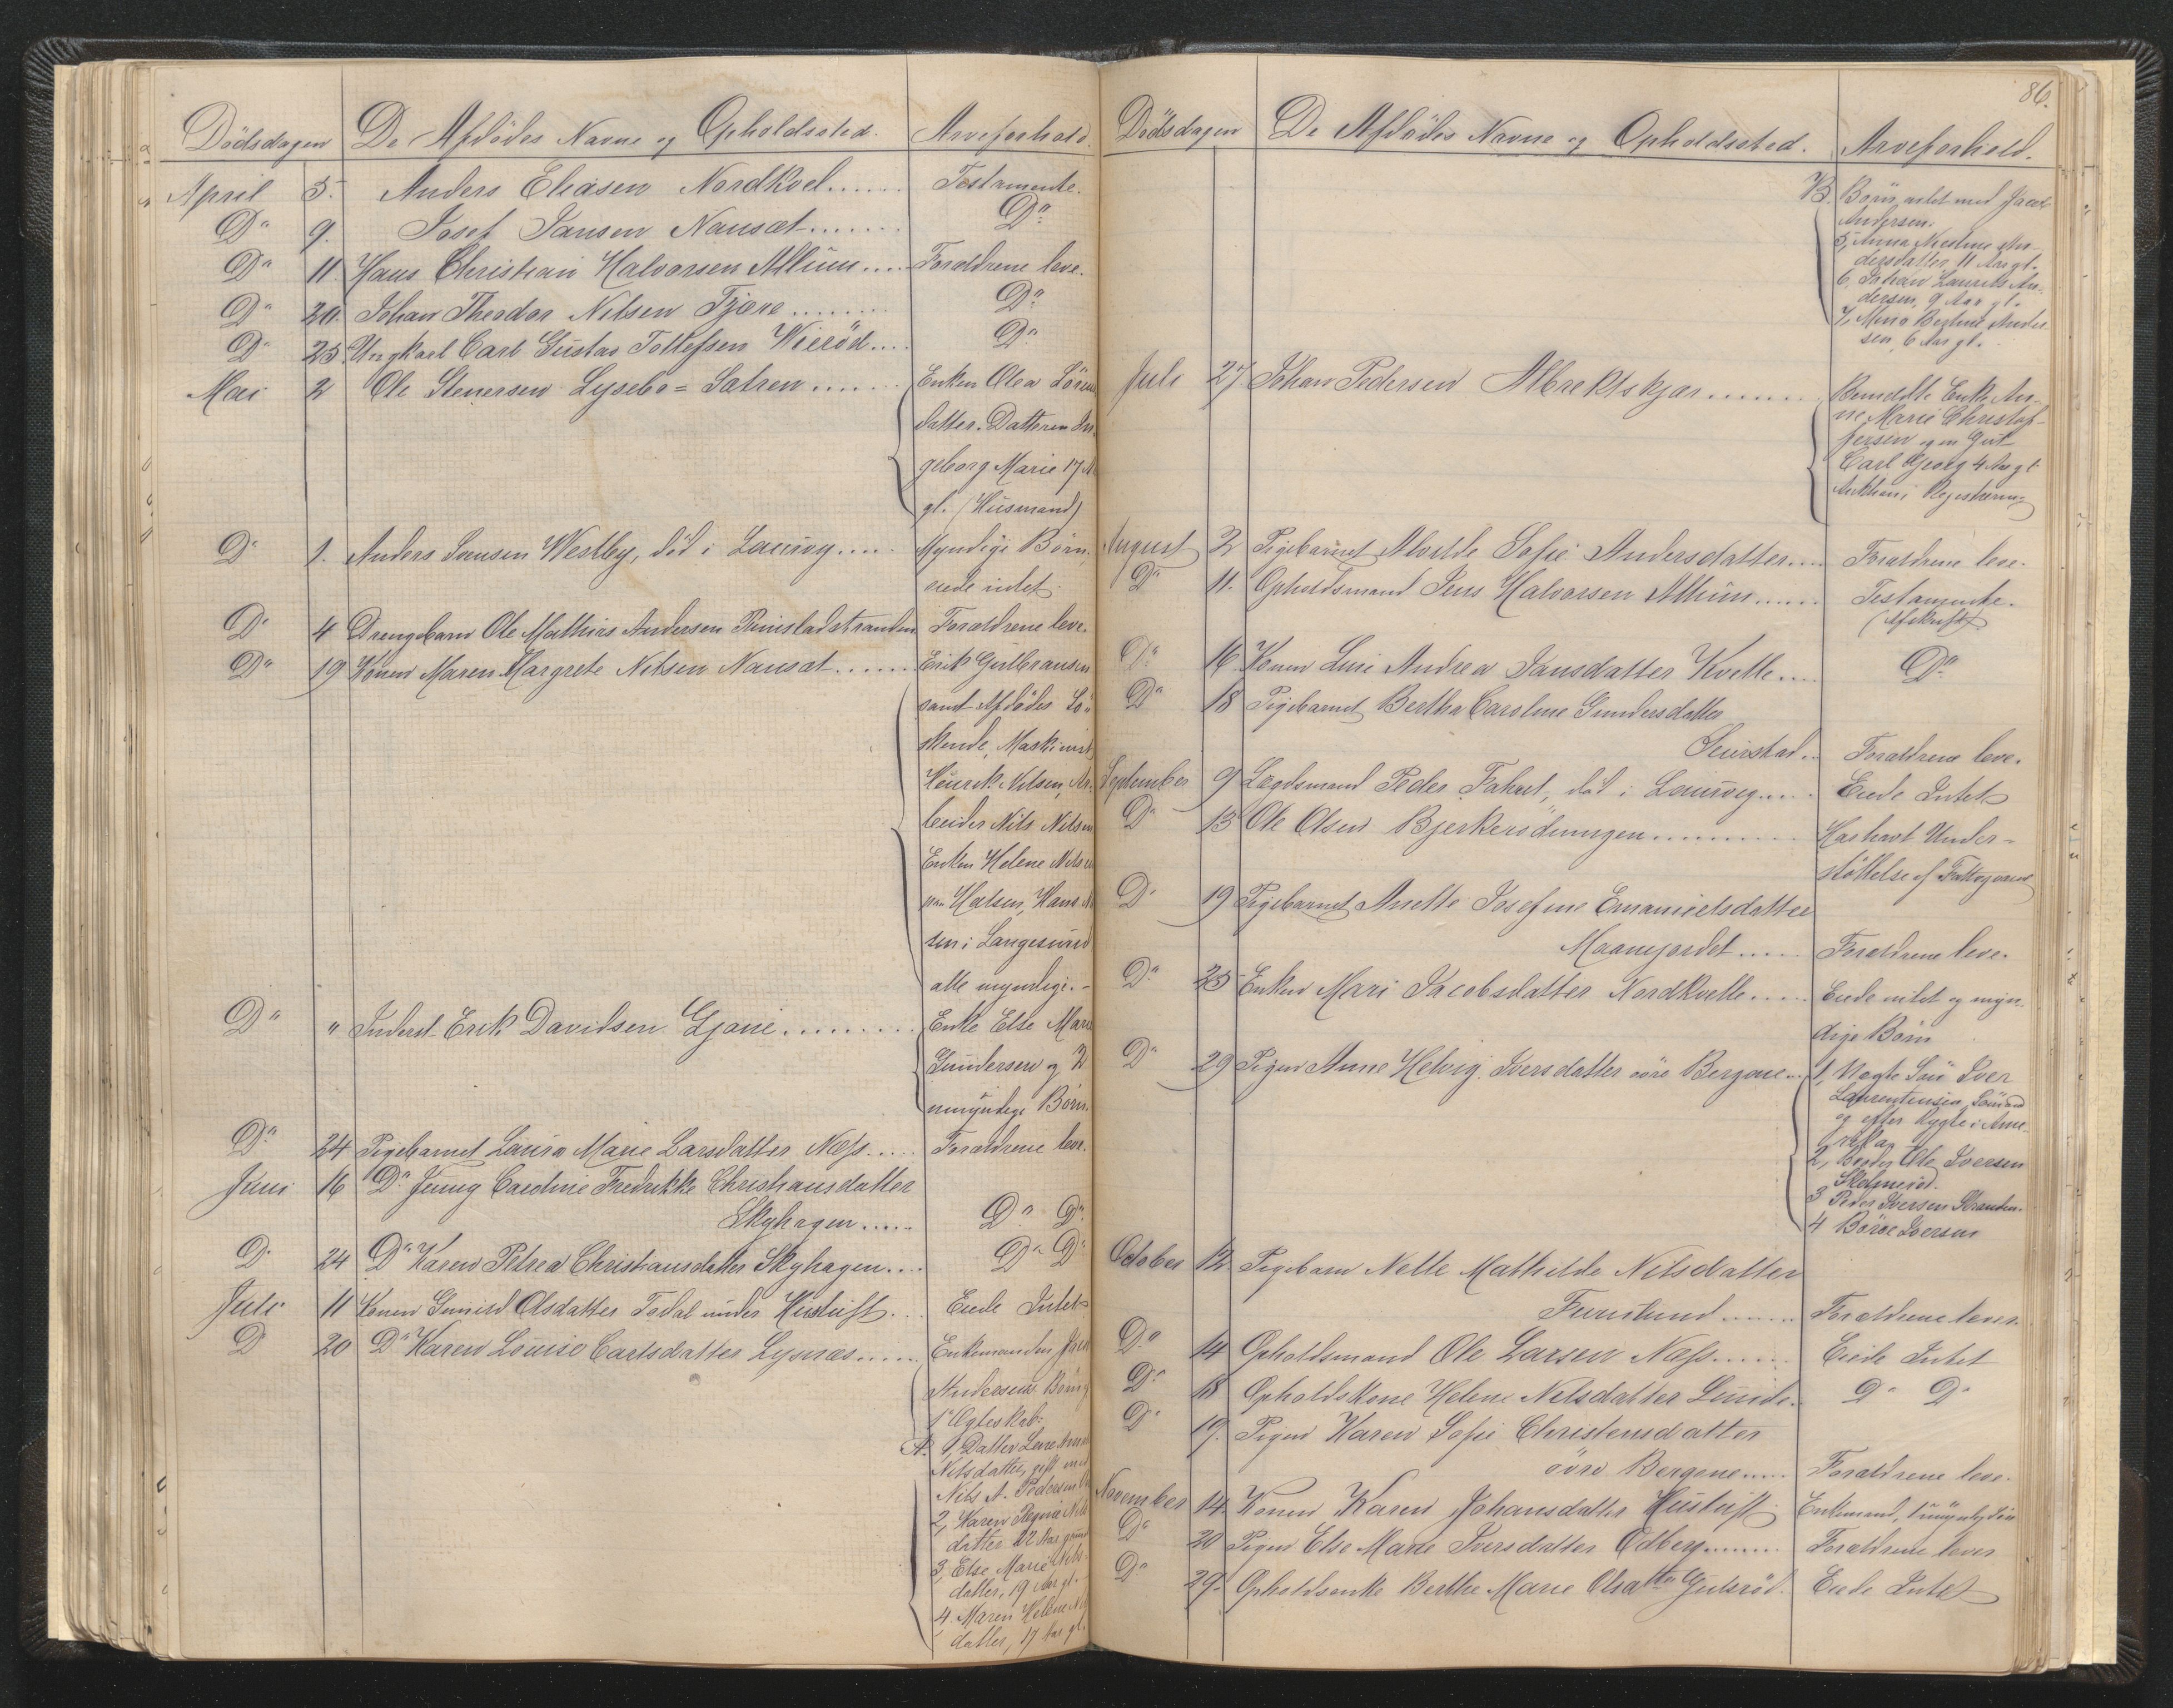 Dödsdagen De Afdödes Navne og Opholdssted. Arveforhold.
April 5. Anders Eliasen Nordkvel...... Testamente.
Do 9. Josef Jansen Nauset....... Do
Do 11. Hans Christian Halvorsen Allum..... Forældrene leve.
Do 20. Johan Theodor Nilsen Tjære ........ Do
Do 25. Ungkarl Carl Gustav Tollefsen Wieröd.... Do
Mai 2 Ole Stenersen Lysebo=Sætren....... Enken Olea Sören
datter. Datteren In
geborg Marie 17 A
gl. (Husmand)
Do 1. Anders Jansen Westby, död i Laurvig..... Myndige Börn,
eiede intet.
Do 4 Drengebarn Ole Mathias Andersen Rimstadstranden Forældrene leve.
Do 19 Konen Maren Margrete Nilsen Nauset...... Erik Gulbransen
samt Afdödes Sö=
skende, Maskinist
Henrik Nilsen, Ar
beider Nils Nilsen
Enken Helene Nilsen
Hans
sen i Langesund
alle myndige.-
Do " Inderst Erik Davidsen Gjone......... Enke Else Marie
Gundersen og 2
umyndige Börn.
Do 24 Pigebarnet Laura Marie Larsdatter Næss..... Forældrene leve.
Juni 16 Do Jenny Caroline Fredrikke Christiansdatter
Skyhagen..... Do Do
Do 24 Do Karen Petrea Christiansdatter Skyhagen.... Do Do
Juli 11 Konen Gunild Olsdatter Todal under Hustuft... Eiede Intet
Do 20 Do Karen Louise Carlsdatter Lysnæs...... Enkemanden Jacob
Andersen Börn
1o Ægteskab:
A. 1, Datter Lene
Nilsdatter, gift med
Nils A. Pedersen
2, Karen Regine Nils
datter 22 Aar gammel
3, Else Marie Nils-
datter, 19 Aar gl.
4. Maren Helene Nils
datter, 17 Aar gl.
86.
Dödsdagen De Afdödes Navne og Opholdssted. Arveforhold.
B. Börn avlet med Jacob
Andersen.
5, Anna Nicoline An-
dersdatter 11 Aar gl.
6, Johan Laurits An-
dersen, 9 Aar gl.
7, Bertine Ander
sen, 6 Aar gl.
Juli 27 Johan Pedersen Albrektskjær....... Bemeldte Enke An-
ne Marie Christof-
fersen og en Gut
Carl Georg 4 Aar gl.
Auktion, Registrering
August 2 Pigebarnet Alvilde Sofie Andersdatter.... Forældrene leve.
Do 11. Opholdsmand Jens Halvorsen Allum...... Testamente.
(Afskrift)
Do 16 Konen Line Andrea Jansdatter Kvelle.... Do
Do 18 Pigebarnet Bertha Caroline Gundersdatter
Seierstad.. Forældrene leve.
September 9 Lægdsmand Peder Fahret, död i Laurvig.... Eiede Intet
Do 13 Ole Olsen Bjerkerödningen......... Har havt Under-
stöttelse af Fattigvæsenet
Do 19 Pigebarnet Anette Josefine Emanuelsdatter
Maanejordet..... Forældrene leve.
Do 25 Enken Mari Jacobsdatter Nordkvelle..... Eiede intet og myn-
dige Börn
Do 29 Pigen Anne Helvig Iversdatter övre Bergene... 1, Uægte Sön Iver
Laurentiusen, Sömand
og efter Rygte i Ame-
rika
2, Broder Ole Iversen
3 Peder Iversen Stranden.
4 Börre Iversen
October 12 Pigebarn Nelle Mathilde Nilsdatter
Furulund....... Forældrene lever.
Do 14 Opholdsmand Ole Larsen Næss...... Eiede Intet
Do 18 Opholdskone Helene Nilsdatter Lunde. Do Do
Do 19. Pigen Karen Sofie Christensdatter
övre Bergene..... Forældrene leve.
November 14. Konen Karen Johansdatter Hustuft Enkemand, 1 umyndig Sön
Do 20 Pigen Else Marie Iversdatter Odberg....... Forældrene lever
Do 29. Opholdsenke Berthe Marie Olsdatter Guteröd. Eiede Intet